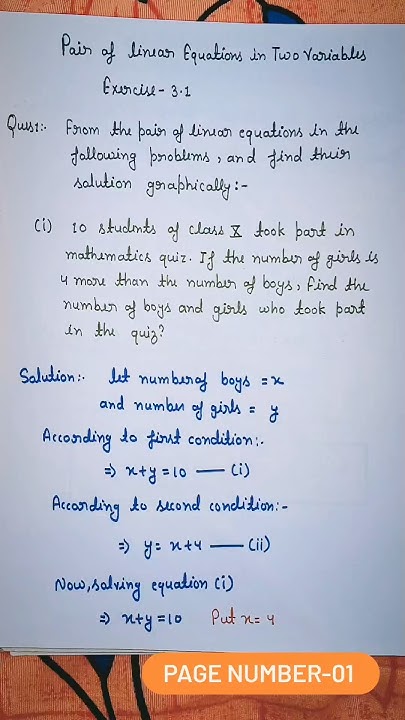 Pair of linear Equations in Two Variables
Exercise - 3.1
Ques1:- From the pair of linear equations in the
following problems, and find their
solution graphically:-
(i) 10 students of class X took part in
mathematics quiz. If the number of girls is
4 more than the number of boys, find the
number of boys and girls who took part
in the quiz?
Solution:- let number of boys = x
and number of girls = y
According to first condition:-
⇒ x+y=10 — (i)
According to second condition:-
⇒ y= x+4 — (ii)
Now, solving equation (i)
⇒ x+y=10 Put x= 4
PAGE NUMBER-01